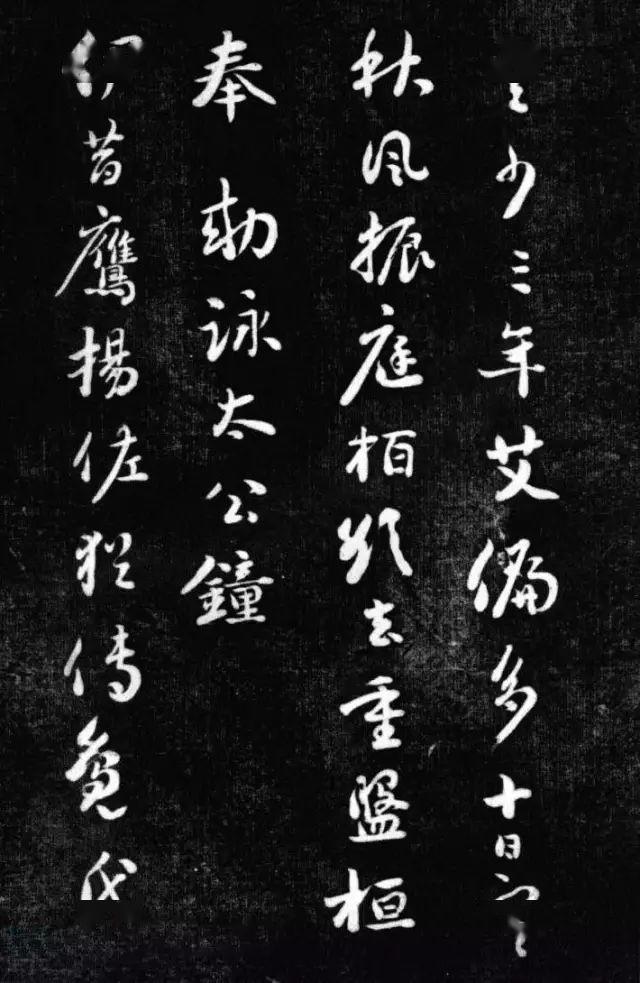 少三年艾偏多十日
秋風振庭柏欲去重盤桓
奉勅詠太公鐘
伊昔鷹揚佐猶傳鳧